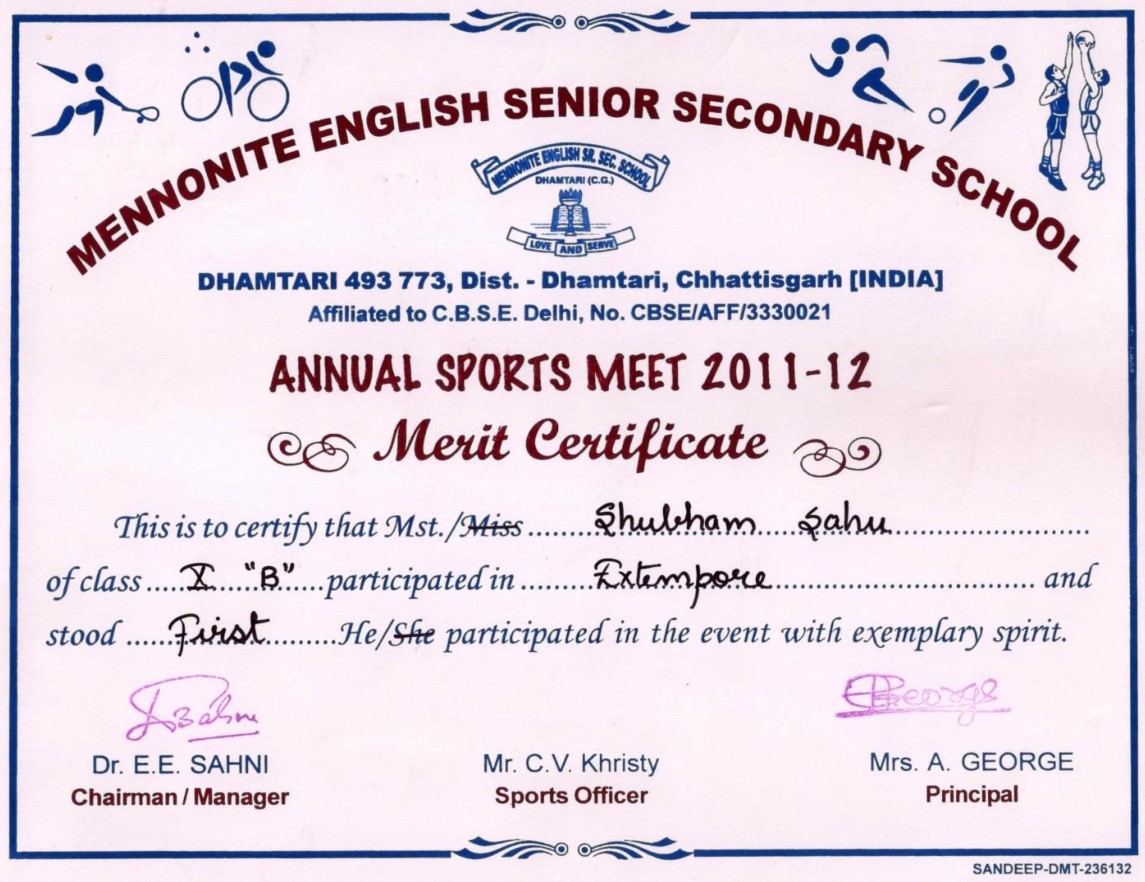 MENNONITE ENGLISH SENIOR SECONDARY SCHOOL
MENNONITE ENGLISH SR. SEC. SCHOOL
DHAMTARI (C.G.)
LOVE AND SERVE
DHAMTARI 493 773, Dist. - Dhamtari, Chhattisgarh [INDIA]
Affiliated to C.B.S.E. Delhi, No. CBSE/AFF/3330021
ANNUAL SPORTS MEET 2011-12
Merit Certificate
This is to certify that Mst./Miss ........ Shubham Sahu ........
of class ..... X "B" ..... participated in ........ Extempore ........ and
stood ..... First ......... He/She participated in the event with exemplary spirit.
George
Dr. E.E. SAHNI Mr. C.V. Khristy Mrs. A. GEORGE
Chairman / Manager Sports Officer Principal
SANDEEP-DMT-236132